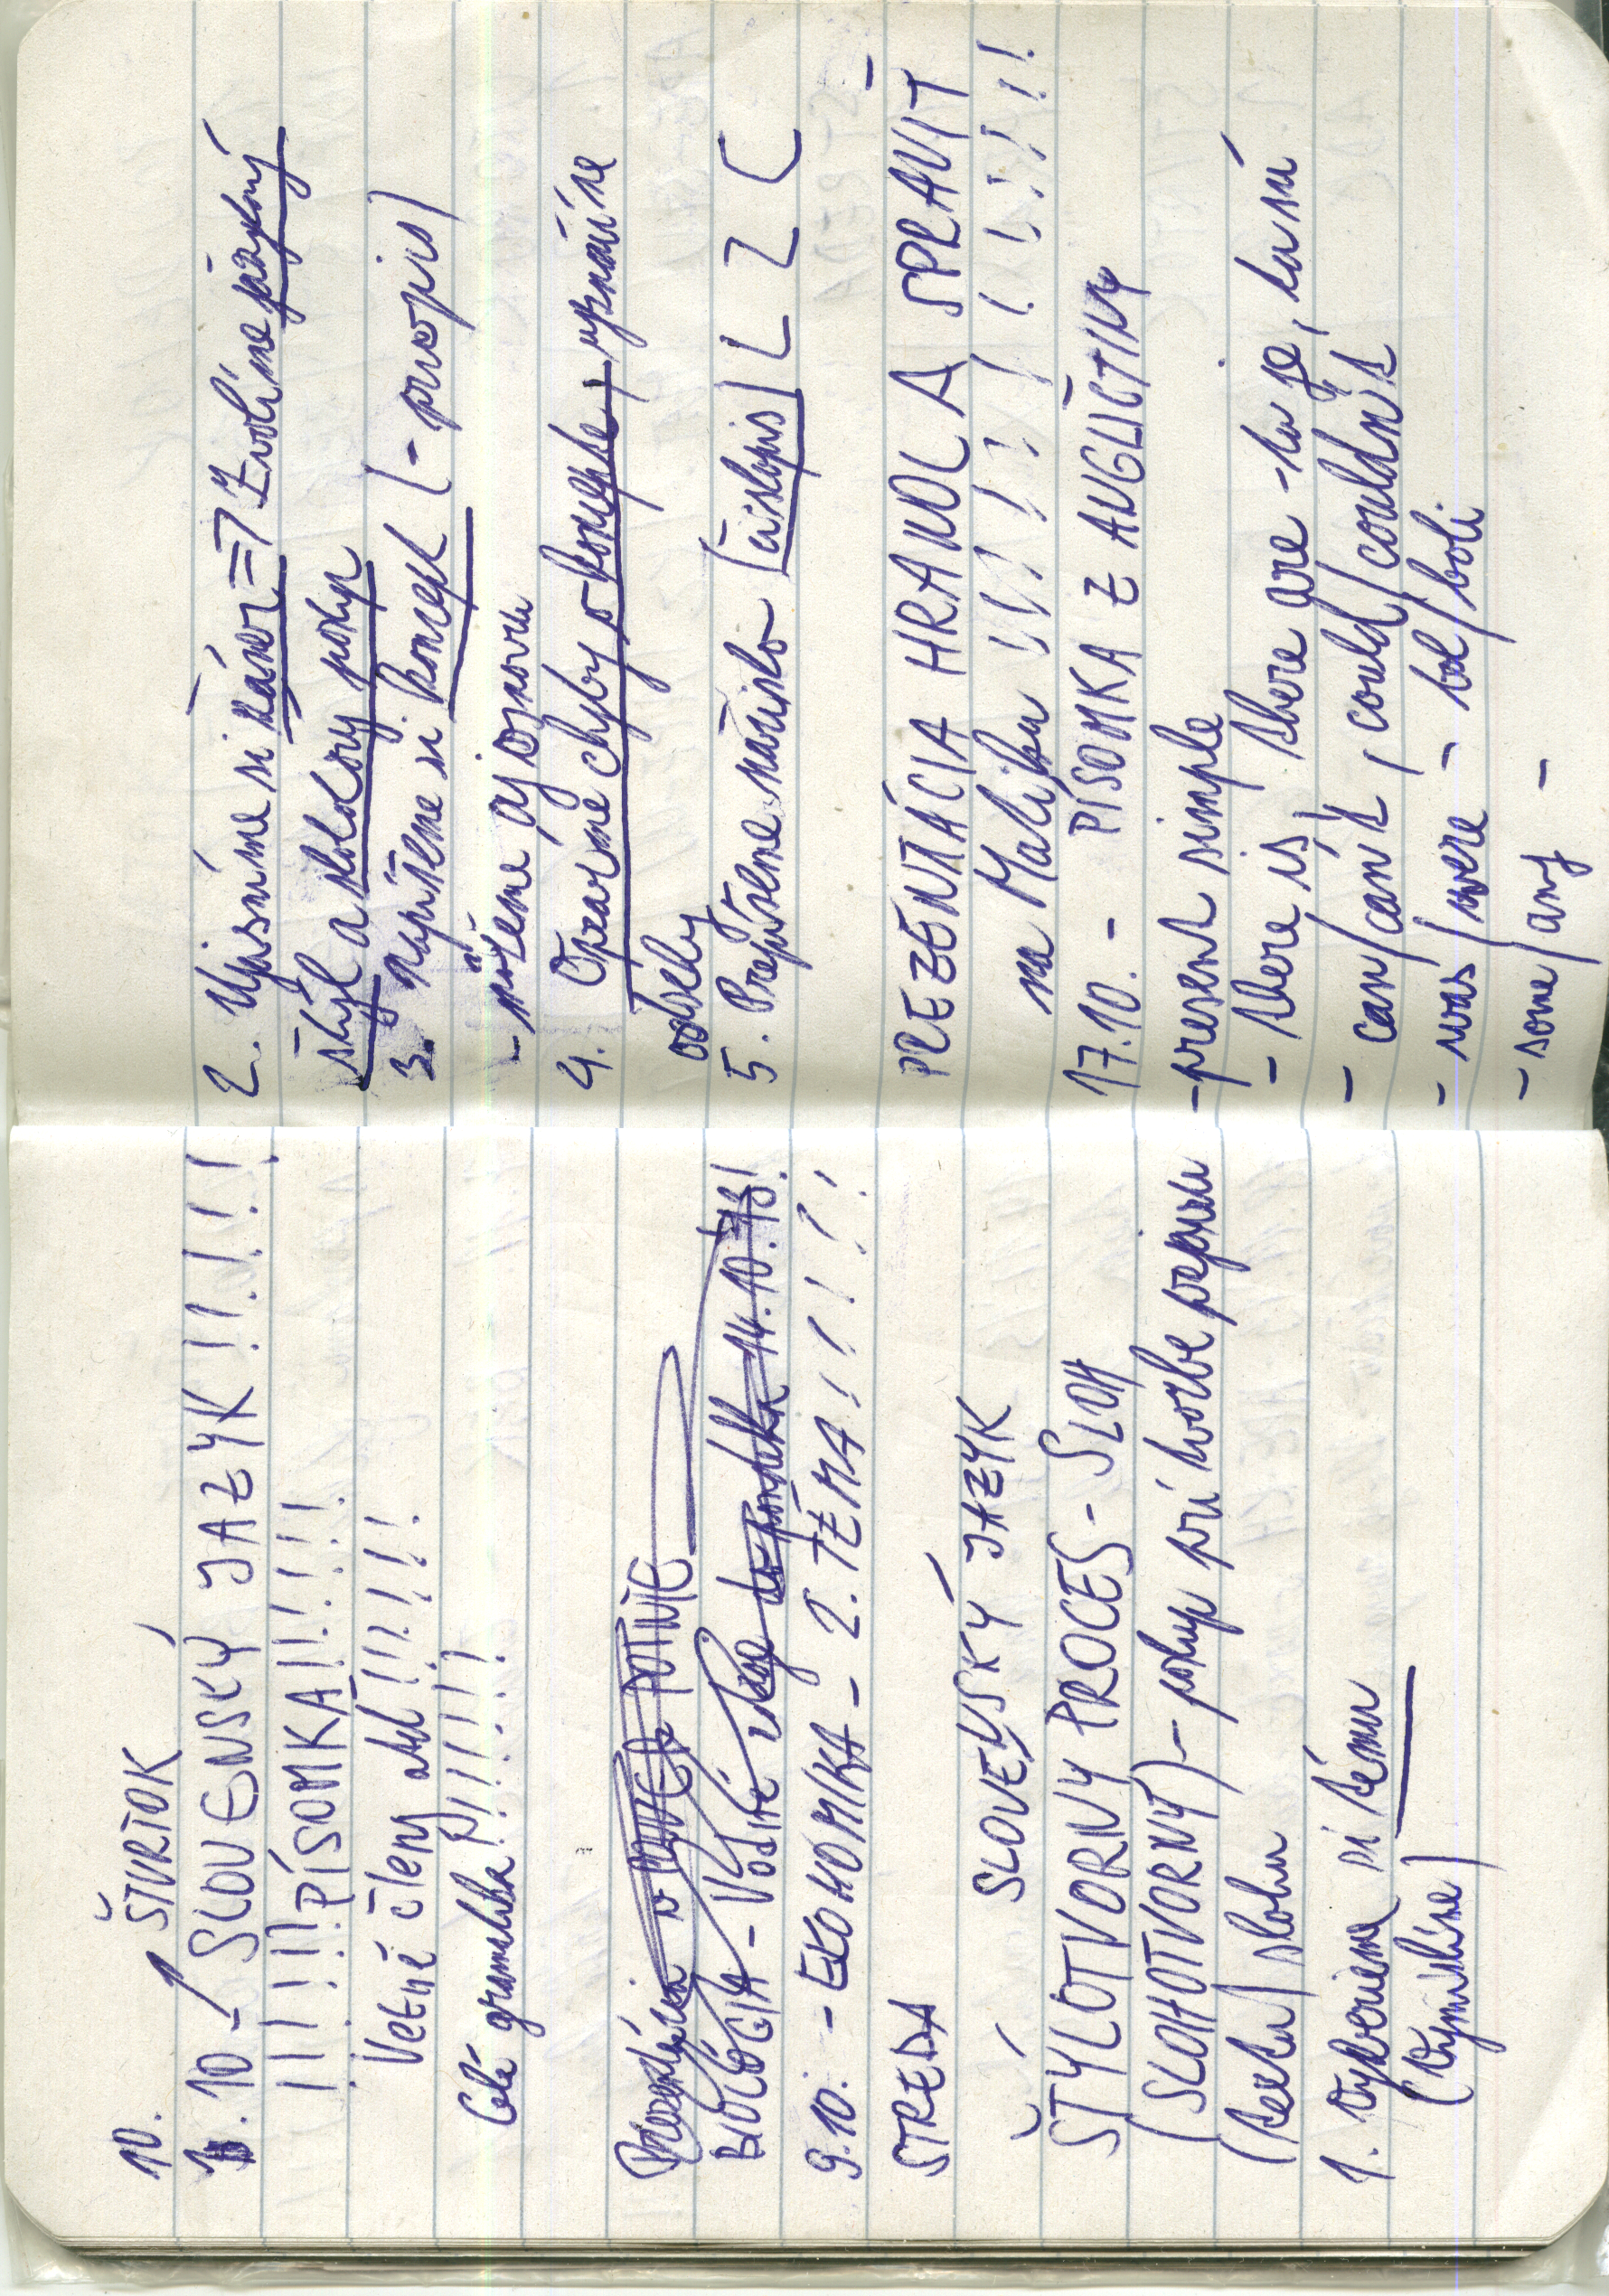 10. ŠTVRTOK
10 - SLOVENSKÝ JAZYK !!!!!
!!!!!! PÍSOMKA !!!!!!!
Vetné členy atď !!!!!!!
Celá gramatika !!!!!!!!
Prezentácia POTNIE
BIOLÓGIA - Vodné do pondelka 14.10.13!
9.10. - EKONOMIKA - 2. TÉMA !!!!!!
STREDA
SLOVENSKÝ JAZYK
ŠTÝLOTVORNÝ PROCES - SLOH
(SLOHOTVORNÝ) - postup pri tvorbe prejavu
(textu) slohu
1. Vyberieme si tému
(Vymislíme)
2. Ujasníme si zámer => Zvolíme jazykový
štýl a slohový postup
3. napíšeme si koncept (- prvopis)
- môžeme aj osnovu
4. Opravíme chyby v koncepte + vyznačíme
odseky
5. Prepíšeme načisto [čistopis] L Z (
PREZENTÁCIA HRANOL A SPRAVIT -
na Matiku !!!!!!!!!!!!!!
17.10. - PÍSOMKA Z ANGLIČTINY
- present simple
- there is, there are - tu je, tu sú
- can/can't, could/couldn't
- was/were - bol/boli
- some/any -